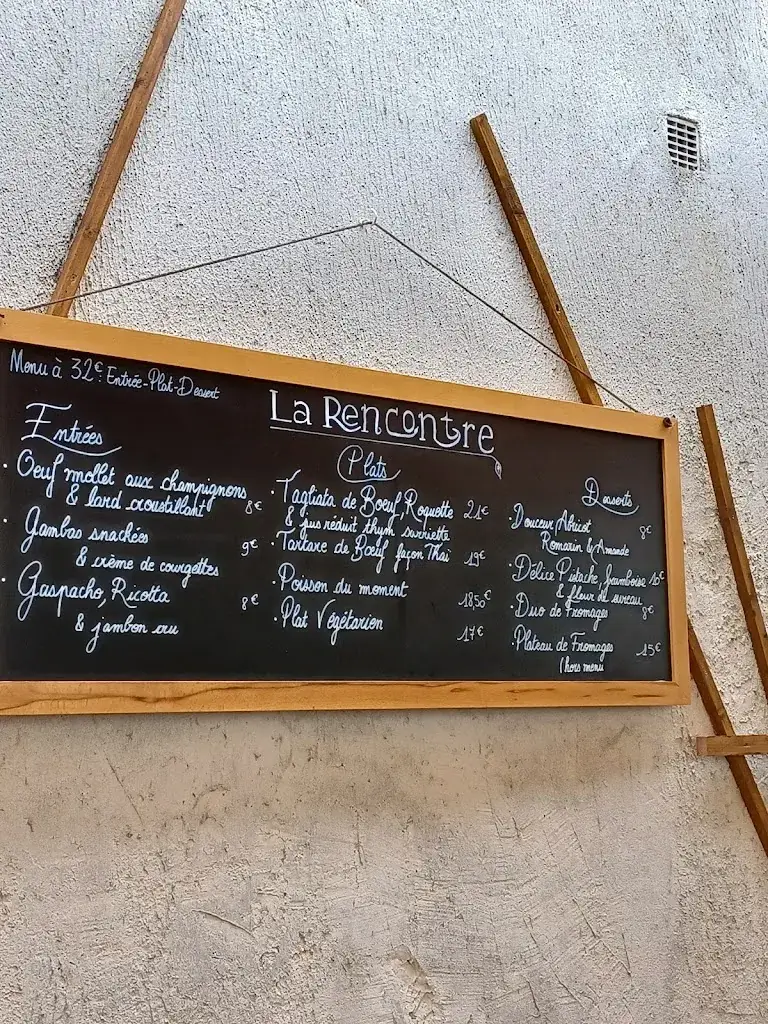 Menu à 32€: Entrée-Plat-Dessert
La Rencontre
Entrées
· Oeuf mollet aux champignons
& lard croustillant 8€
· Gambas snackées
& crème de courgettes 9€
· Gaspacho, Ricotta
& jambon cru 8€
Plats
· Tagliata de Boeuf, Roquette 21€
& jus réduit thym sarriette
· Tartare de Boeuf façon Thaï 19€
· Poisson du moment 18,50€
· Plat Végétarien 17€
Desserts
· Douceur Abricot 8€
Romarin & Amande
· Délice Pistache, framboise 10€
& fleur de sureau
· Duo de Fromages 8€
· Plateau de Fromages 15€
(hors menu